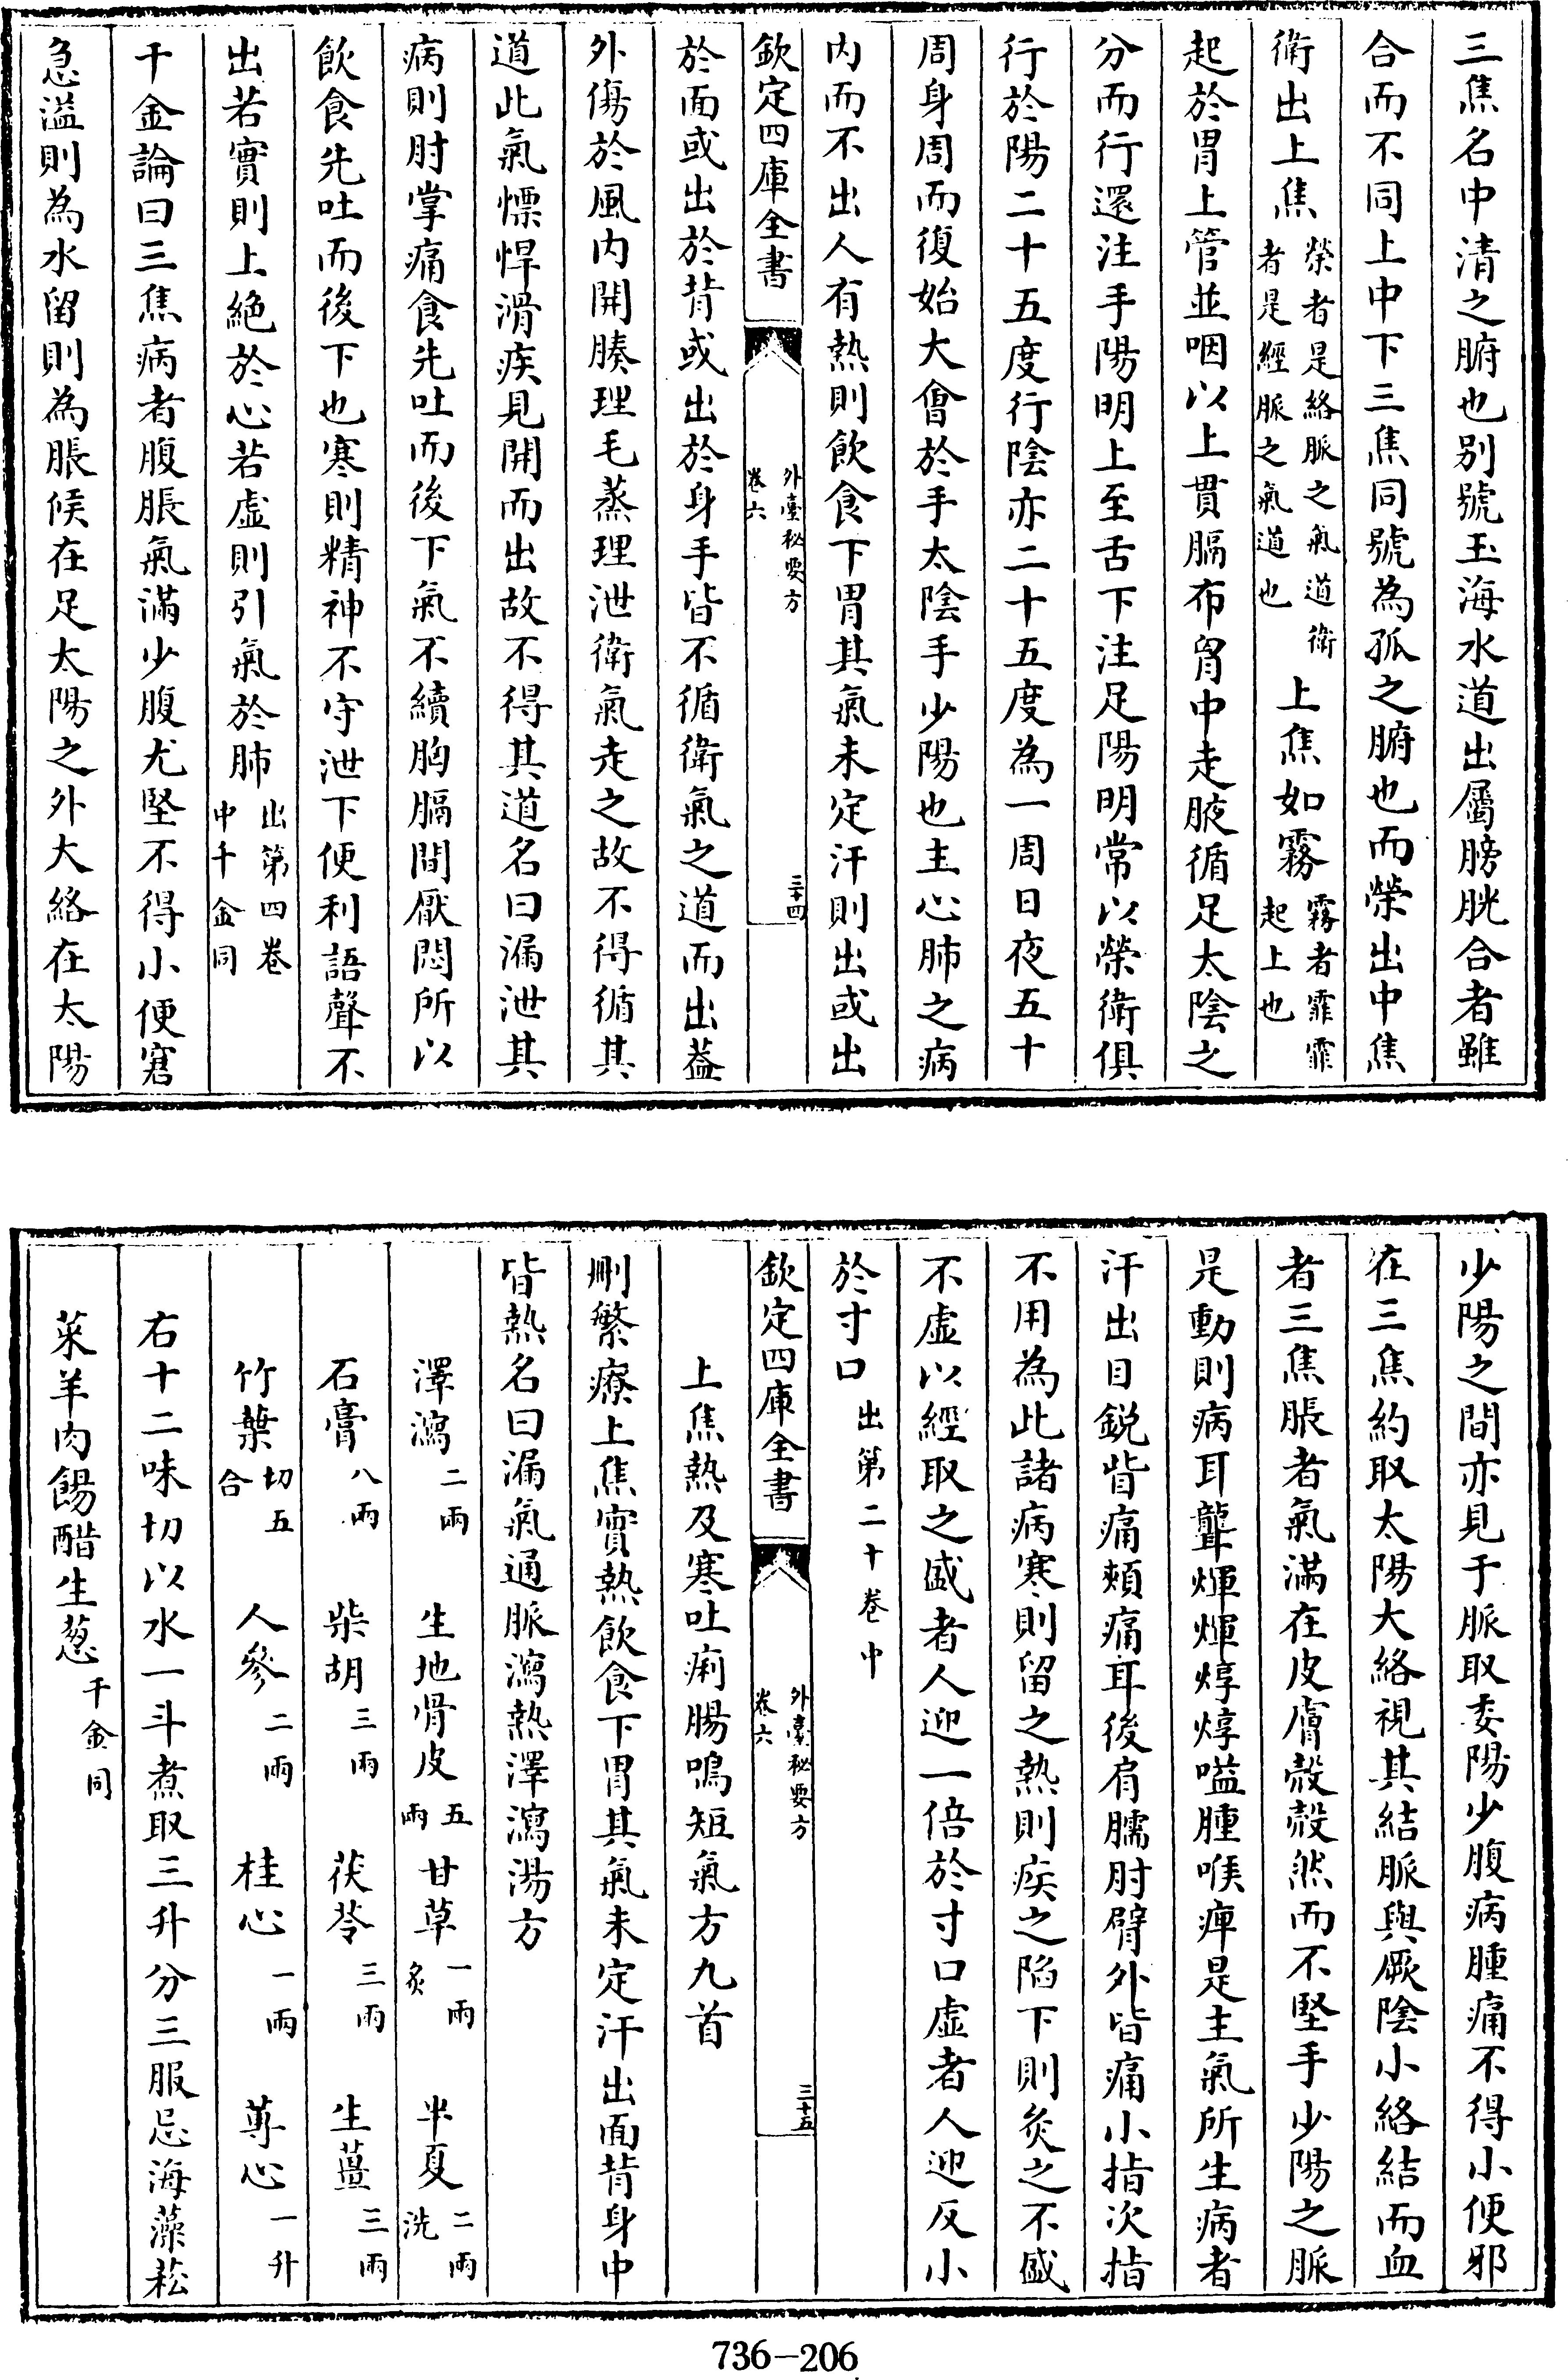 三焦名中清之腑也别號玉海水道出屬膀胱合者雖
合而不同上中下三焦同號為孤之腑也而榮出中焦
衛出上焦榮者是絡脈之氣道衛者是經脈之氣道也上焦如霧霧者霏霏起上也
起於胃上管並咽以上貫膈布胷中走腋循足太陰之
分而行還注手陽明上至舌下注足陽明常以榮衛俱
行於陽二十五度行陰亦二十五度為一周日夜五十
周身周而復始大會於手太陰手少陽也主心肺之病
内而不出人有熱則飲食下胃其氣未定汗則出或出
欽定四庫全書 外臺秘要方卷六 三十四
於面或出於背或出於身手皆不循衛氣之道而出蓋
外傷於風内開腠理毛蒸理泄衛氣走之故不得循其
道此氣慓悍滑疾見開而出故不得其道名曰漏泄其
病則肘掌痛食先吐而後下氣不續胸膈間厭悶所以
飲食先吐而後下也寒則精神不守泄下便利語聲不
出若實則上絶於心若虛則引氣於肺出第四卷中千金同
千金論曰三焦病者腹脹氣滿少腹尤堅不得小便窘
急溢則為水留則為脹候在足太陽之外大絡在太陽
少陽之間亦見于脈取委陽少腹病腫痛不得小便邪
在三焦約取太陽大絡視其結脈與厥陰小絡結而血
者三焦脹者氣滿在皮膚殼殼然而不堅手少陽之脈
是動則病耳聾煇煇焞焞嗌腫喉痺是主氣所生病者
汗出目鋭眥痛頰痛耳後肩臑肘臂外皆痛小指次指
不用為此諸病寒則留之熱則疾之陷下則灸之不盛
不虛以經取之盛者人迎一倍於寸口虛者人迎反小
於寸口出第二十卷中
欽定四庫全書 外臺秘要方卷六 三十五
上焦熱及寒吐痢腸鳴短氣方九首
刪繁療上焦實熱飲食下胃其氣未定汗出面背身中
皆熱名曰漏氣通脈瀉熱澤瀉湯方
澤瀉二兩 生地骨皮五兩 甘草一兩炙 半夏二兩洗
石膏八兩 柴胡三兩 茯苓三兩 生薑三兩
竹葉切五合 人參二兩 桂心一兩 蓴心一升
右十二味切以水一斗煮取三升分三服忌海藻菘
菜羊肉餳醋生葱千金同
736-206